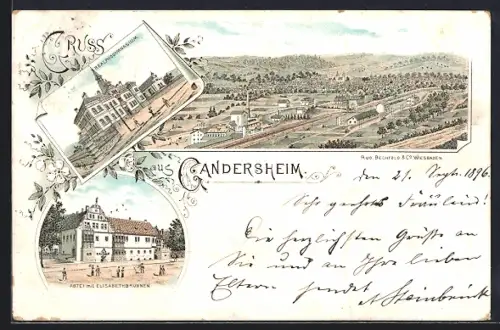 GRUSS
REALPROGYMNASIUM.
AUS
GANDERSHEIM.
RUD. BECHTOLD & Co WIESBADEN.
ABTEI MIT ELISABETHBRUNNEN
den 21. Sept. 1896.
Sehr geehrtes Fräulein!
Die herzlichsten Grüße an
Sie und an Ihre lieben
Eltern sendet A Steinbrück